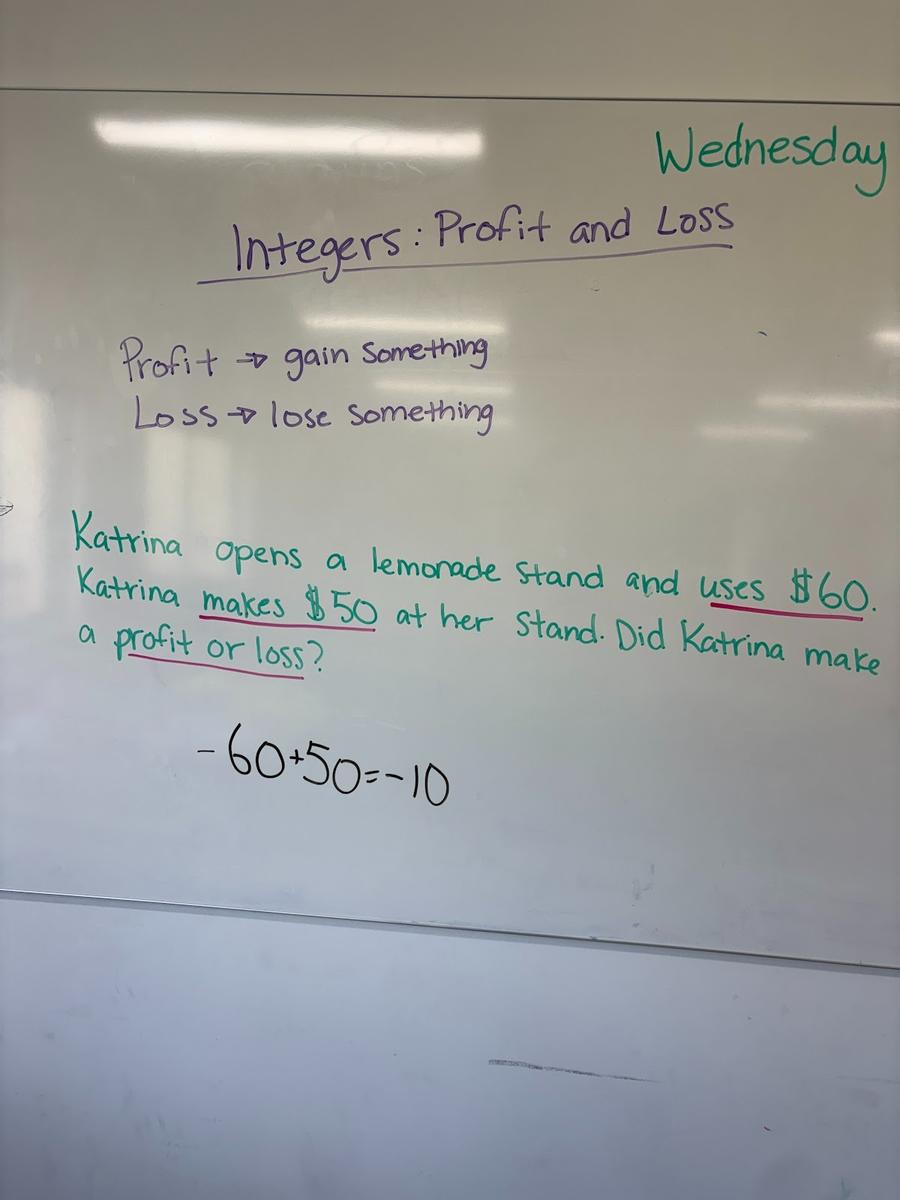 Wednesday
Integers: Profit and Loss
Profit → gain something
Loss → lose something
Katrina opens a lemonade stand and uses $60.
Katrina makes $50 at her stand. Did Katrina make
a profit or loss?
-60+50=-10